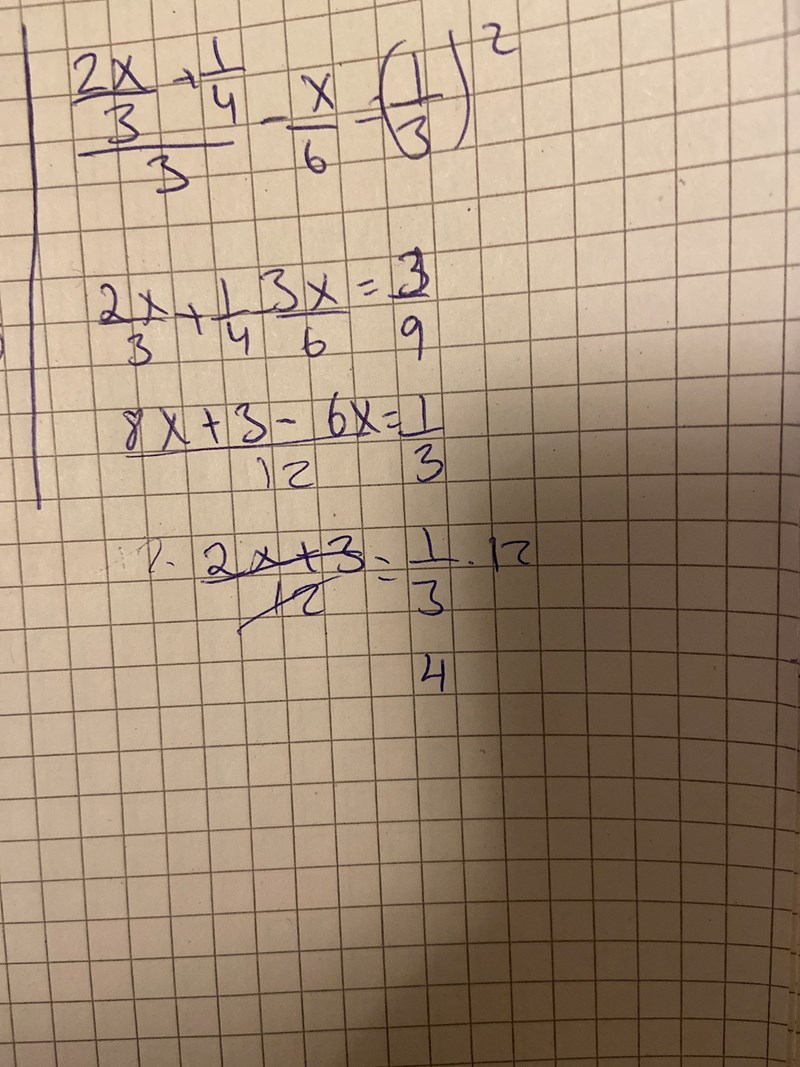 2x/3 + 1/4 / 3 - x/6 = (1/3)²
2x/3 + 1/4 3x/6 = 3/9
8x + 3 - 6x / 12 = 1/3
2x + 3 / 12 = 1/3 · 12
4